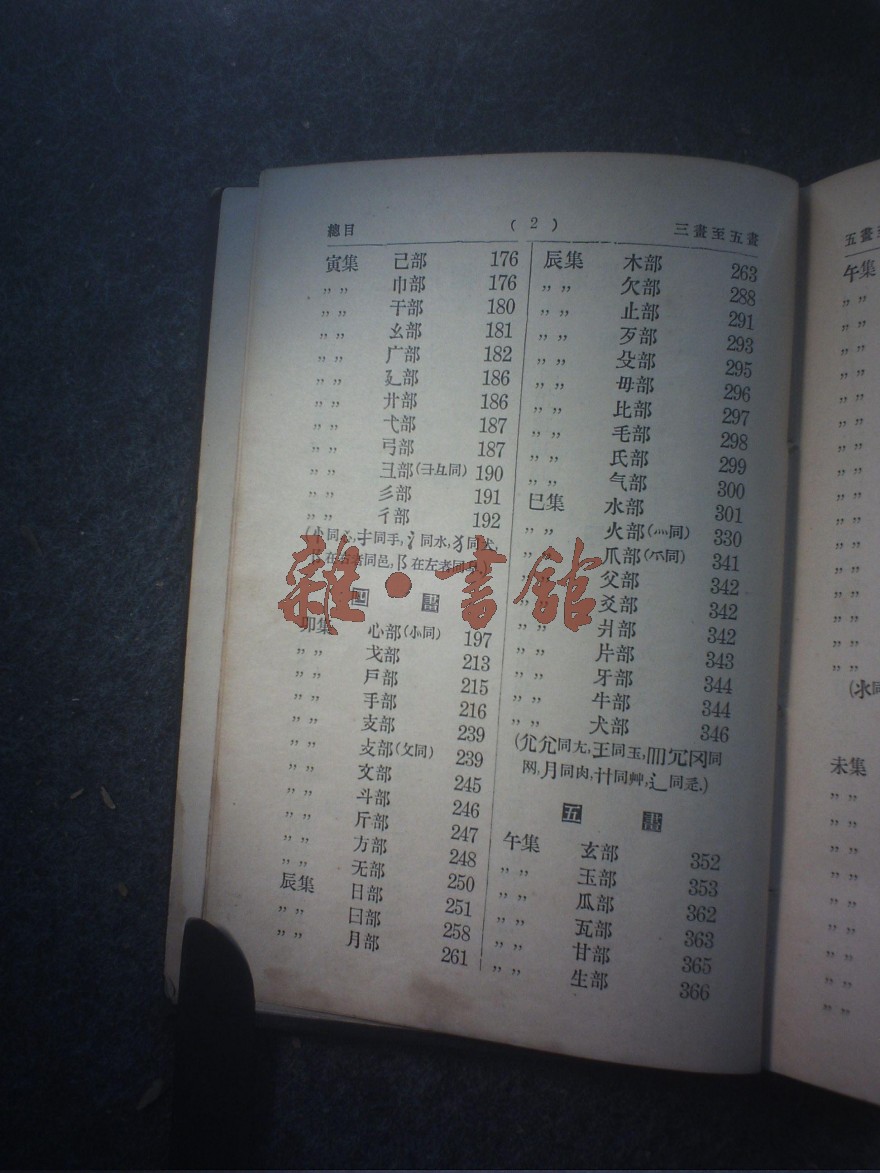 總目 ( 2 ) 三畫至五畫
寅集 己部 176
〃〃 巾部 176
〃〃 干部 180
〃〃 幺部 181
〃〃 广部 182
〃〃 廴部 186
〃〃 廾部 186
〃〃 弋部 187
〃〃 弓部 187
〃〃 彐部(彐彑同) 190
〃〃 彡部 191
〃〃 彳部 192
(忄同心,扌同手,氵同水,犭同犬,
阝在右者同邑,阝在左者同阜.)
四 畫
卯集 心部(㣺同) 197
〃〃 戈部 213
〃〃 戶部 215
〃〃 手部 216
〃〃 支部 239
〃〃 攴部(攵同) 239
〃〃 文部 245
〃〃 斗部 246
〃〃 斤部 247
〃〃 方部 248
〃〃 无部 250
辰集 日部 251
〃〃 曰部 258
〃〃 月部 261
辰集 木部 263
〃〃 欠部 288
〃〃 止部 291
〃〃 歹部 293
〃〃 殳部 295
〃〃 毋部 296
〃〃 比部 297
〃〃 毛部 298
〃〃 氏部 299
〃〃 气部 300
巳集 水部 301
〃〃 火部(灬同) 330
〃〃 爪部(爫同) 341
〃〃 父部 342
〃〃 爻部 342
〃〃 爿部 342
〃〃 片部 343
〃〃 牙部 344
〃〃 牛部 344
〃〃 犬部 346
同尢,王同玉,罒冗冈同
网,月同肉,卄同艸,辶同辵.)
五 畫
午集 玄部 352
〃〃 玉部 353
〃〃 瓜部 362
〃〃 瓦部 363
〃〃 甘部 365
〃〃 生部 366
五畫
午集
〃〃
〃〃
〃〃
〃〃
〃〃
〃〃
〃〃
〃〃
(氺同
未集
〃〃
〃〃
〃〃
〃〃
〃〃
雜·書館